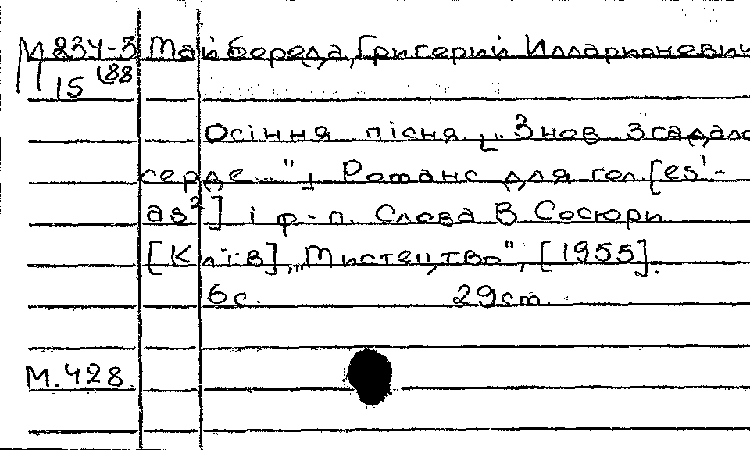 М 834-3 Майборода, Григорий Илларионович
15 188
Осіння пісня [„Знов згадало
серце..."]. Романс для гол. [es¹-
as²] і ф-п. Слова В Сосюри
[Київ], „Мистецтво", [1955].
6с. 29см.
М.428.